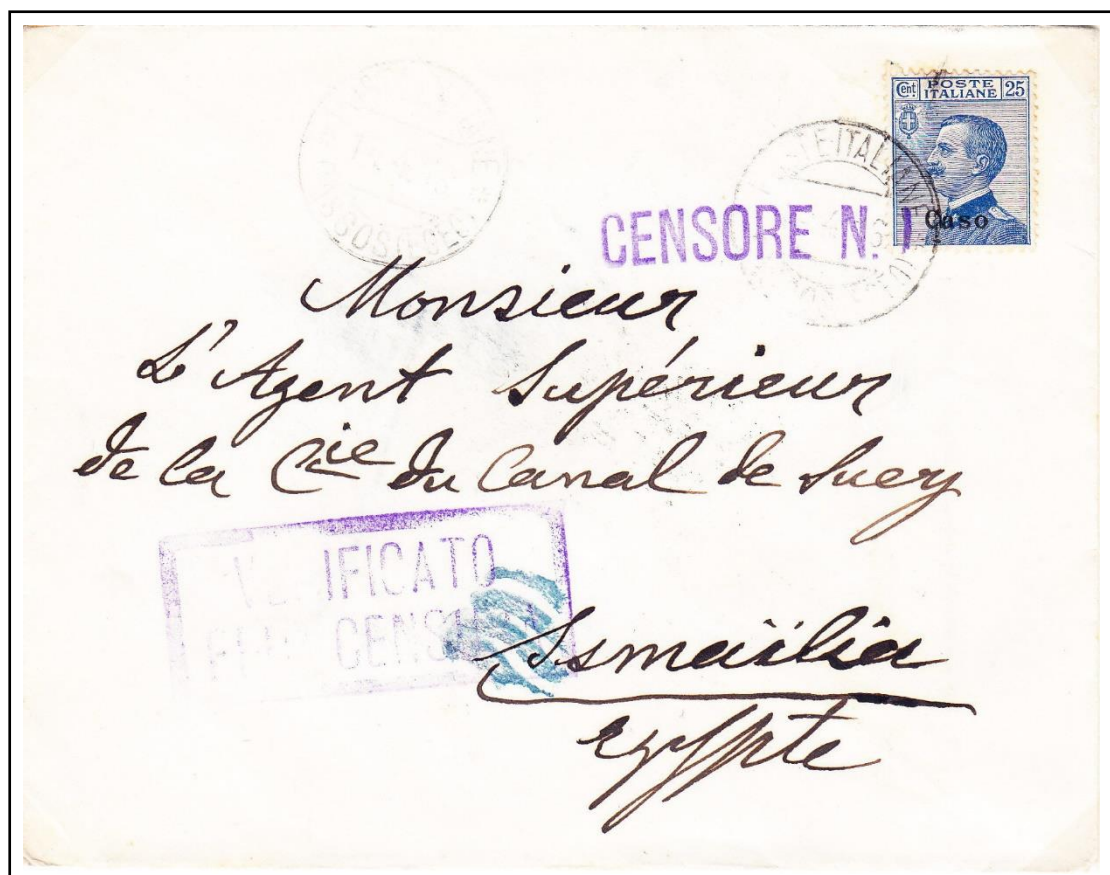 Cent. POSTE ITALIANE 25
POSTE ITALIANE
Caso
CENSORE N. 1
Monsieur
L'Agent Supérieur
de la Cie du Canal de Suez
VERIFICATO
CENSURA
Ismaïlia
Egypte